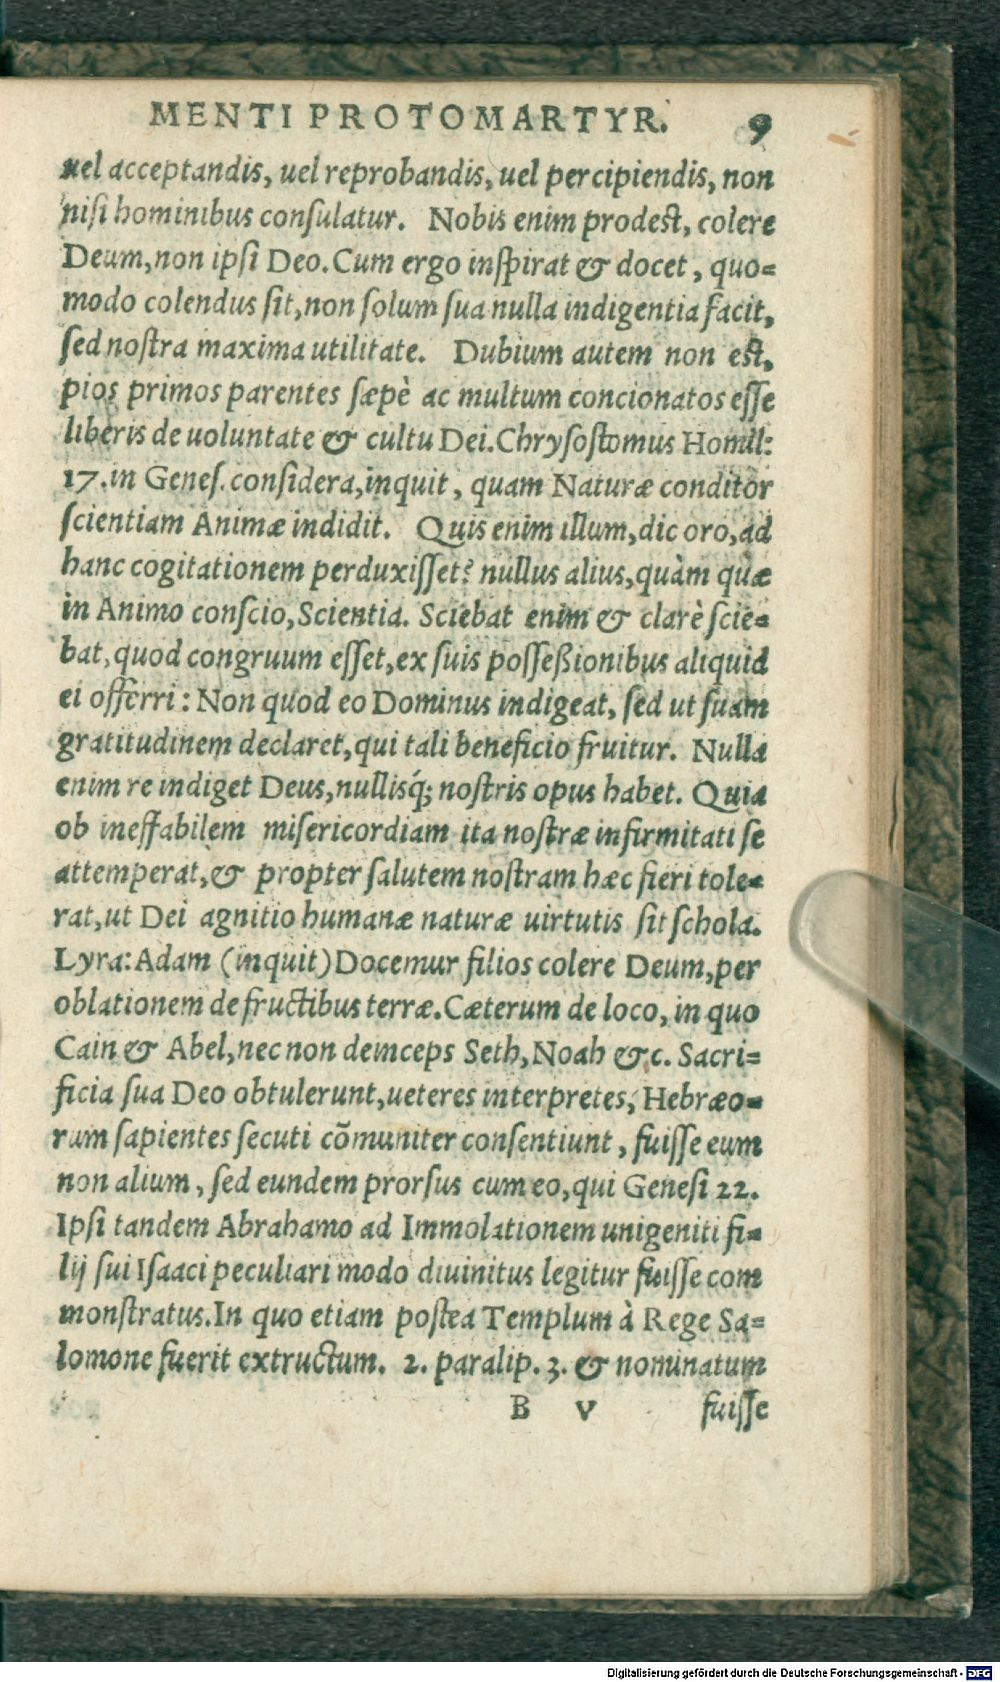 MENTI PROTOMARTYR. 9
uel acceptandis, uel reprobandis, uel percipiendis, non
nisi hominibus consulatur. Nobis enim prodest, colere
Deum, non ipsi Deo. Cum ergo inspirat & docet, quo=
modo colendus sit, non solum sua nulla indigentia facit,
sed nostra maxima utilitate. Dubium autem non est,
pios primos parentes sæpè ac multum concionatos esse
liberis de uoluntate & cultu Dei. Chrysostomus Homil:
17. in Genes. considera, inquit, quam Naturæ conditor
scientiam Animæ indidit. Quis enim illum, dic oro, ad
hanc cogitationem perduxisset? nullus alius, quàm quæ
in Animo conscio, Scientia. Sciebat enim & clarè scie=
bat, quod congruum esset, ex suis posseßionibus aliquid
ei offerri: Non quod eo Dominus indigeat, sed ut suam
gratitudinem declaret, qui tali beneficio fruitur. Nulla
enim re indiget Deus, nullisq́; nostris opus habet. Quia
ob ineffabilem misericordiam ita nostræ infirmitati se
attemperat, & propter salutem nostram hæc fieri tole=
rat, ut Dei agnitio humanæ naturæ uirtutis sit schola.
Lyra: Adam (inquit) Docemur filios colere Deum, per
oblationem de fructibus terræ. Cæterum de loco, in quo
Cain & Abel, nec non deinceps Seth, Noah &c. Sacri=
ficia sua Deo obtulerunt, ueteres interpretes, Hebræo=
rum sapientes secuti cõmuniter consentiunt, fuisse eum
non alium, sed eundem prorsus cum eo, qui Genesi 22.
Ipsi tandem Abrahamo ad Immolationem unigeniti fi=
lij sui Isaaci peculiari modo diuinitus legitur fuisse com
monstratus. In quo etiam postea Templum à Rege Sa=
lomone fuerit extructum. 2. paralip. 3. & nominatum
B v fuisse
Digitalisierung gefördert durch die Deutsche Forschungsgemeinschaft - DFG